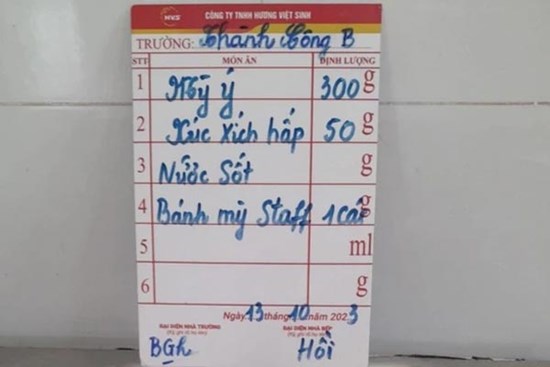 HVS CÔNG TY TNHH HƯƠNG VIỆT SINH
TRƯỜNG: Thành Công B
STT MÓN ĂN ĐỊNH LƯỢNG
1 Mỳ ý 300 g
2 Xúc Xích hấp 50 g
3 Nước Sốt g
4 Bánh mỳ Staff 1 cái g
5 ml
6 g
Ngày 13 tháng 10 năm 2023
ĐẠI DIỆN NHÀ TRƯỜNG ĐẠI DIỆN NHÀ BẾP
(Ký, ghi rõ họ tên) (Ký, ghi rõ họ tên)
BGh Hồi